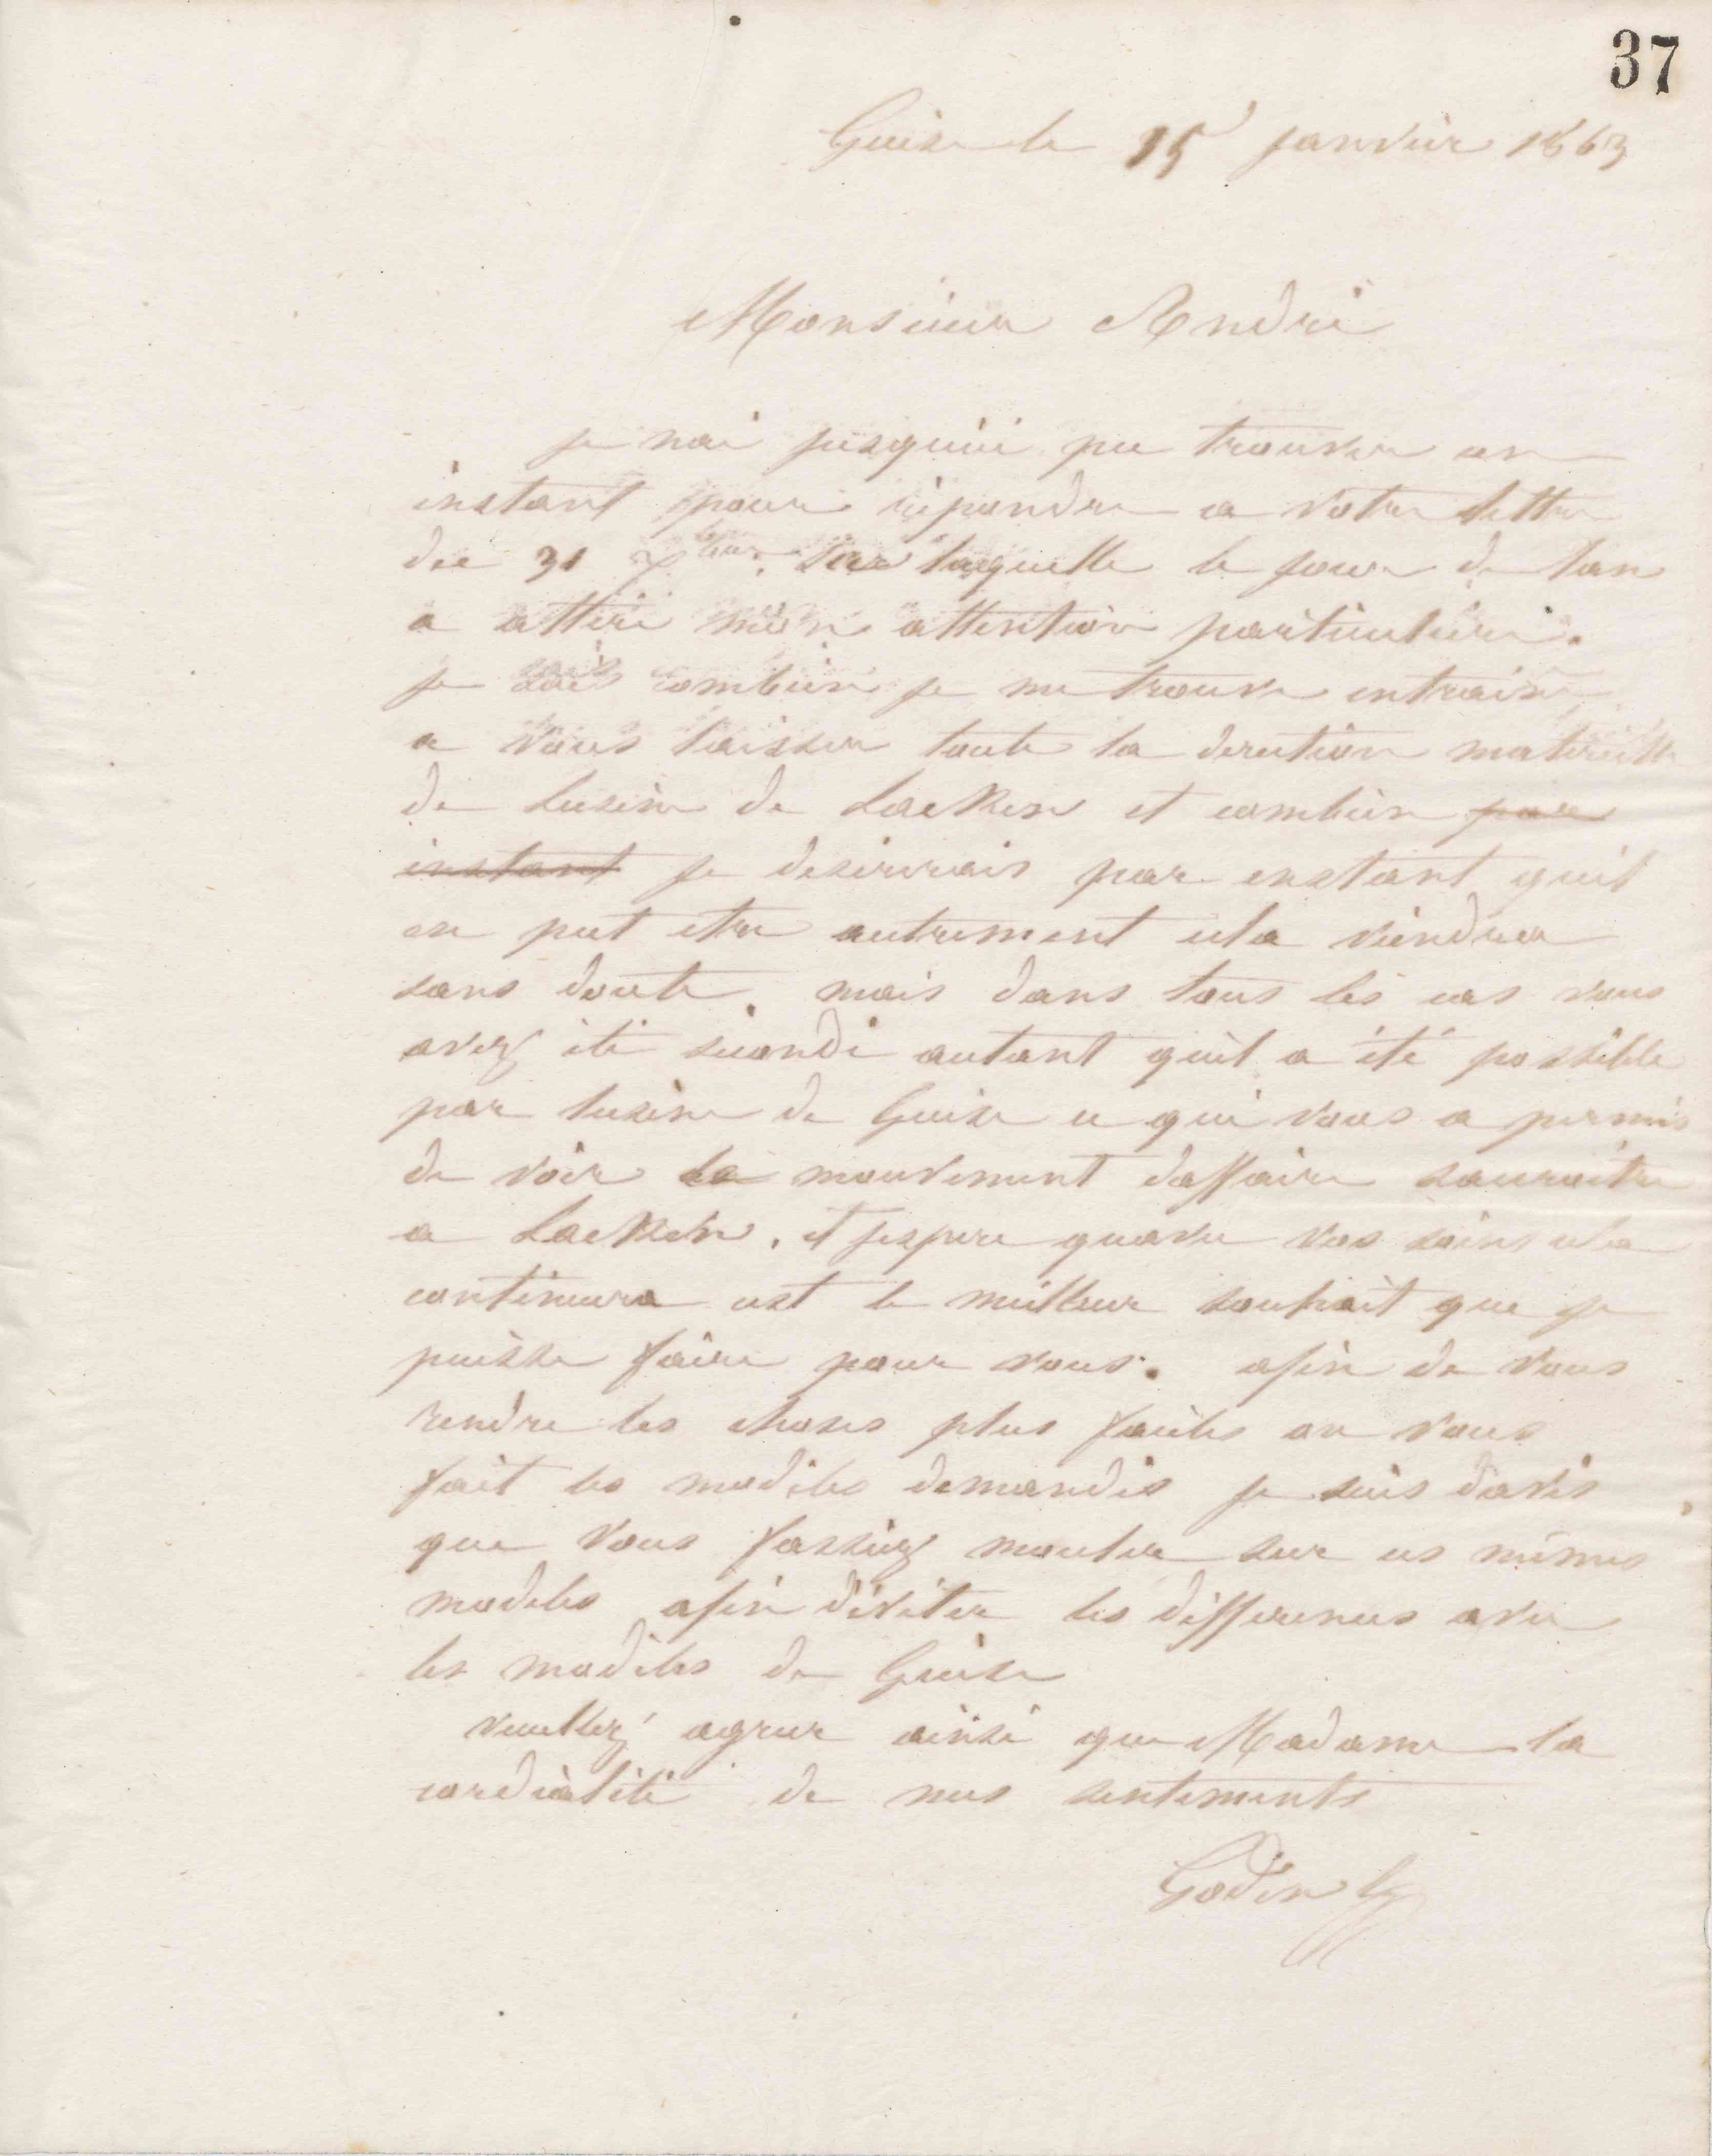 37
Guise le 15 janvier 1863
Monsieur André
je nai jusquici pu trouver un
instant pour répondre a votre lettre
du 31 Xbre. sur laquelle le jour de lan
a attiré mon attention particulière.
je sais combien je me trouve entrainé
a vous laisser toute la direction materielle
de lusine de Laeken et combien par
instant je desirerais par instant quil
en put etre autrement cela viendra
sans doute. mais dans tous les cas vous
avez été secondé autant quil a été possible
par lusine de Guise ce qui vous a permis
de voir le mouvement daffaire saccroitre
a Laeken. et jespere quavec vos soins cela
continuera cest le meilleur souhait que je
puisse faire pour vous. afin de vous
rendre les choses plus faciles on vous
fait les modèles demandés je suis davis
que vous fassiez mouler sur ces mêmes
modeles afin déviter les differences avec
les modèles de Guise
veuillez agreer ainsi que Madame la
cordialité de mes sentiments
Godin